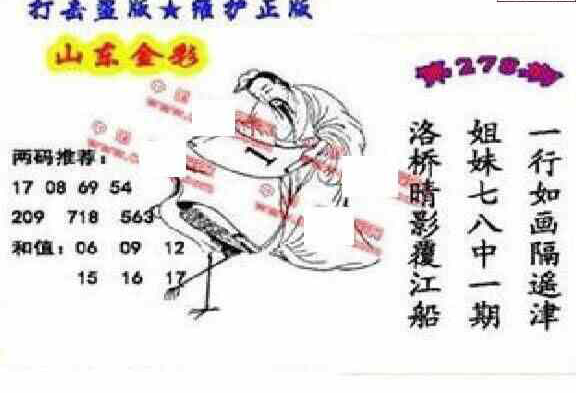 打击盗版★维护正版
山东金彩
第278期
一行如画隔遥津
姐妹七八中一期
洛桥晴影覆江船
两码推荐:
17 08 69 54
209 718 563
和值: 06 09 12
15 16 17
1